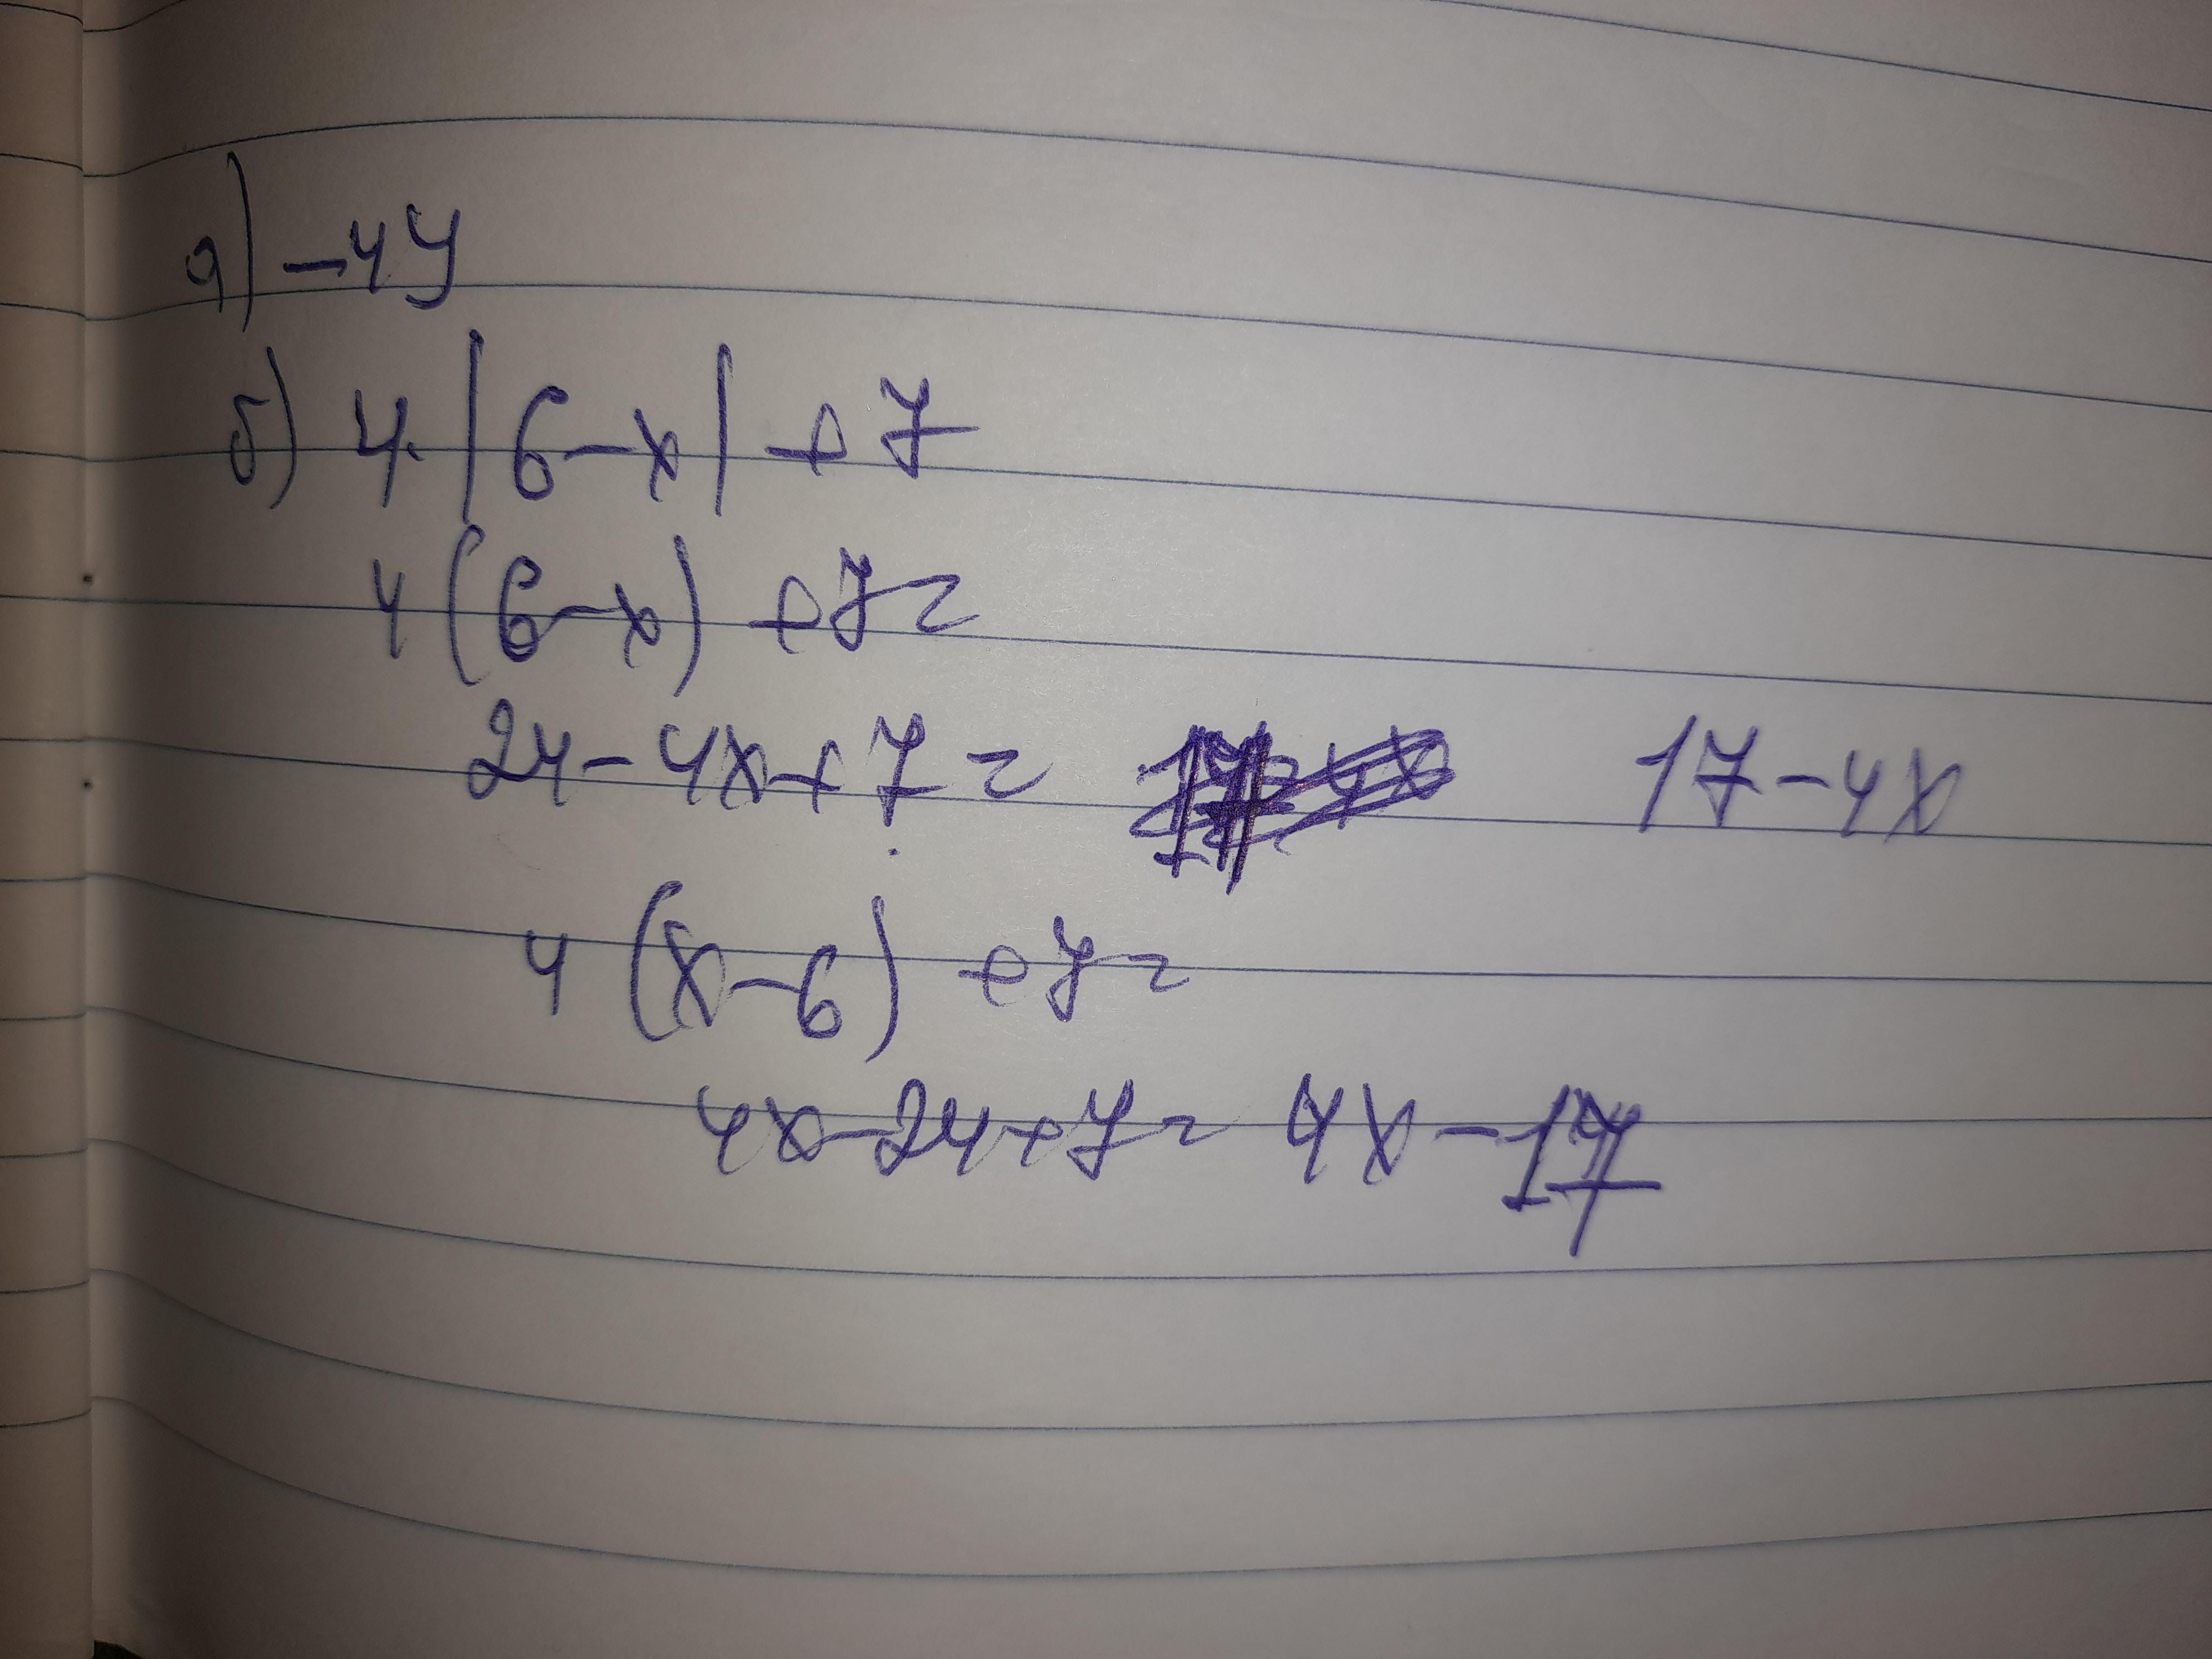 а) -4y
б) 4·|6-x|+7
4(6-x)+7=
24-4x+7= 17-4x
4(x-6)+7=
4x-24+7=4x-17